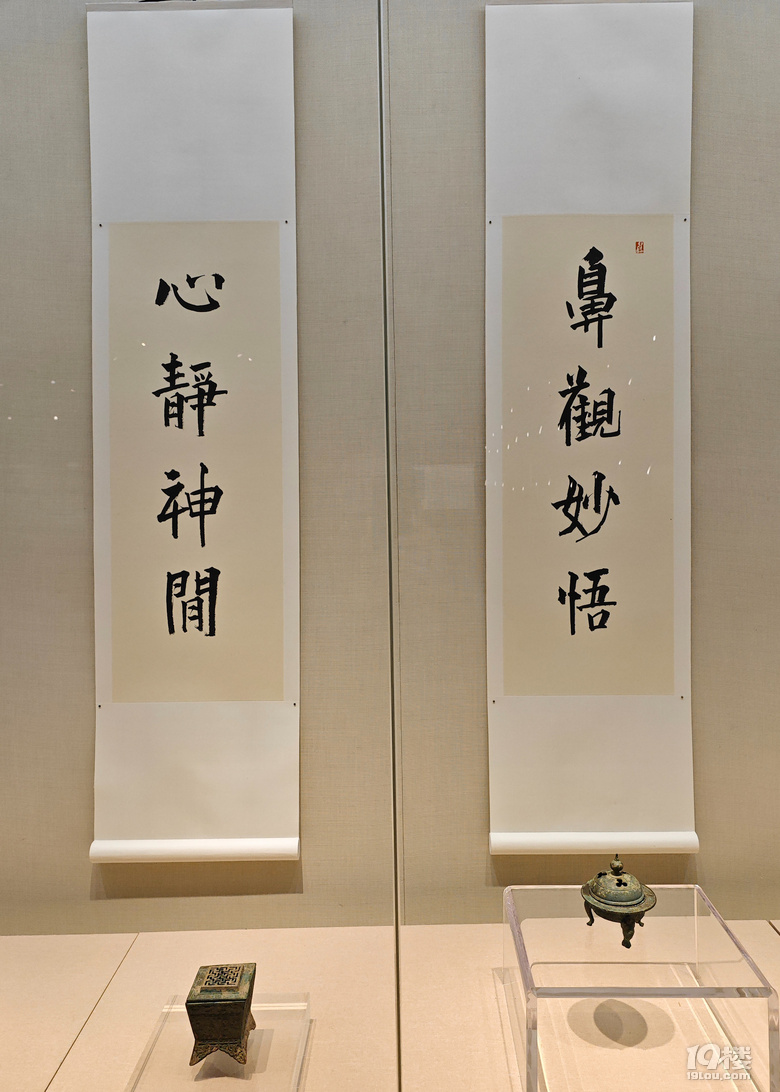 鼻觀妙悟
心靜神閒
19楼
19lou.com